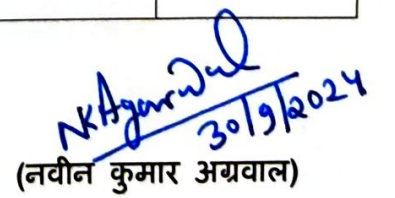 NKAgarwal
30/9/2024
(नवीन कुमार अग्रवाल)